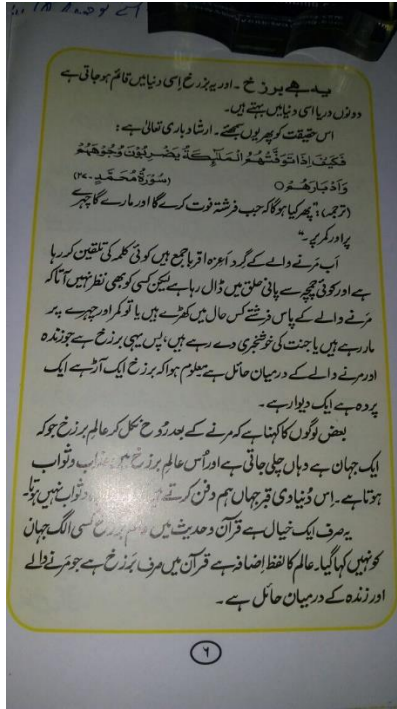 یہ ہے برزخ ۔ اور یہ برزخ اِسی دنیا میں قائم ہو جاتی ہے
دونوں دریا اسی دنیا میں بہتے ہیں۔
اس حقیقت کو پھر یوں سمجھئے۔ ارشاد باری تعالیٰ ہے :
فَكَيْفَ اِذَا تَوَفَّتْهُمُ الْمَلٰٓئِكَةُ يَضْرِبُوْنَ وُجُوْهَهُمْ
وَاَدْبَارَهُمْ ○ (سُوْرَةُ مُحَمَّدٍ ۔٢٧)
(ترجمہ) : "پھر کیا ہوگا کہ جب فرشتہ فوت کرے گا اور مارے گا چہرے
پر اور کمر پر۔"
اَب مَرنے والے کے گرد اَعِزہ اقربا جمع ہیں کوئی کلمہ کی تلقین کر رہا
ہے اور کوئی چمچے سے پانی حلق میں ڈال رہا ہے لیکن کسی کو بھی نظر نہیں آتا کہ
مَرنے والے کے پاس فرشتے کس حال میں کھڑے ہیں یا تو کمر اور چہرے پر
مار رہے ہیں یا جنت کی خوشخبری دے رہے ہیں، پس یہی برزخ ہے جو زندہ
اور مرنے والے کے درمیان حائل ہے معلوم ہوا کہ برزخ ایک آڑ ہے ایک
پردہ ہے ایک دیوار ہے۔
بعض لوگوں کا کہنا ہے کہ مرنے کے بعد رُوح نکل کر عالمِ برزخ جو کہ
ایک جہان ہے وہاں چلی جاتی ہے اور اُس عالمِ برزخ میں عذاب و ثواب
ہوتا ہے۔ اِس دُنیاوی قبر جہاں ہم دفن کرتے ہیں و ثواب نہیں ہوتا۔
یہ صرف ایک خیال ہے قرآن و حدیث میں عالمِ برزخ کسی الگ جہان
کو نہیں کہا گیا۔ عالم کا لفظ اِضافہ ہے قرآن میں صرف بَرزخ ہے جو مَرنے والے
اور زندہ کے درمیان حائل ہے۔
٦